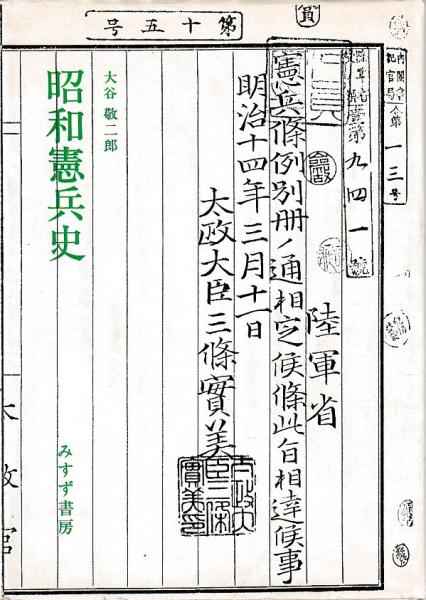 第十五号
大谷敬二郎
昭和憲兵史
みすず書房
陸軍省
憲兵條例別冊ノ通相定候條此旨相達候事
明治十四年三月十一日
太政大臣三條實美
太政大臣三條實美印
第九四一號
一三号